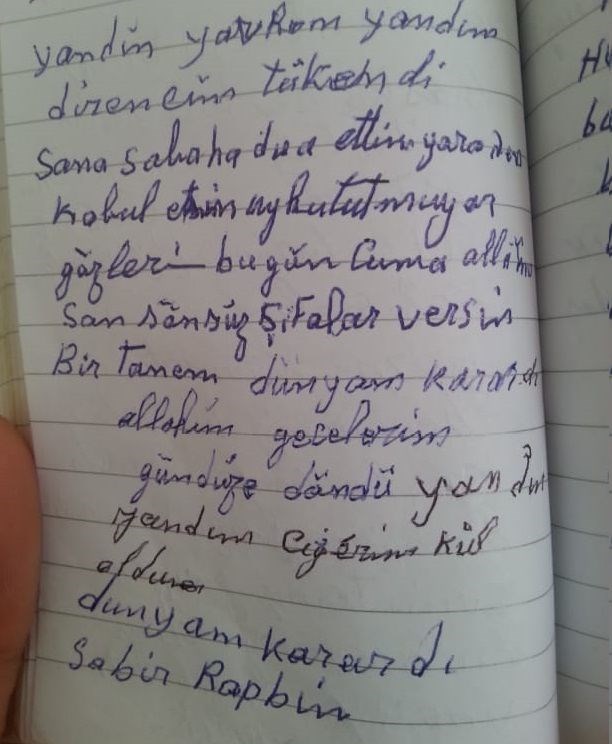 yandın yavrum yandım
direncim tükendi
Sana sabaha dua ettim yaradan
kabul etsin uyku tutmuyor
gözleri bugün Cuma allahım
San sönsüz şifalar versin
Bir Tanem dünyam karardı
allahım gecelerim
gündüze döndü yandım
yandım ciğerim kül
oldu
dunyam karardı
Sabir Rapbim